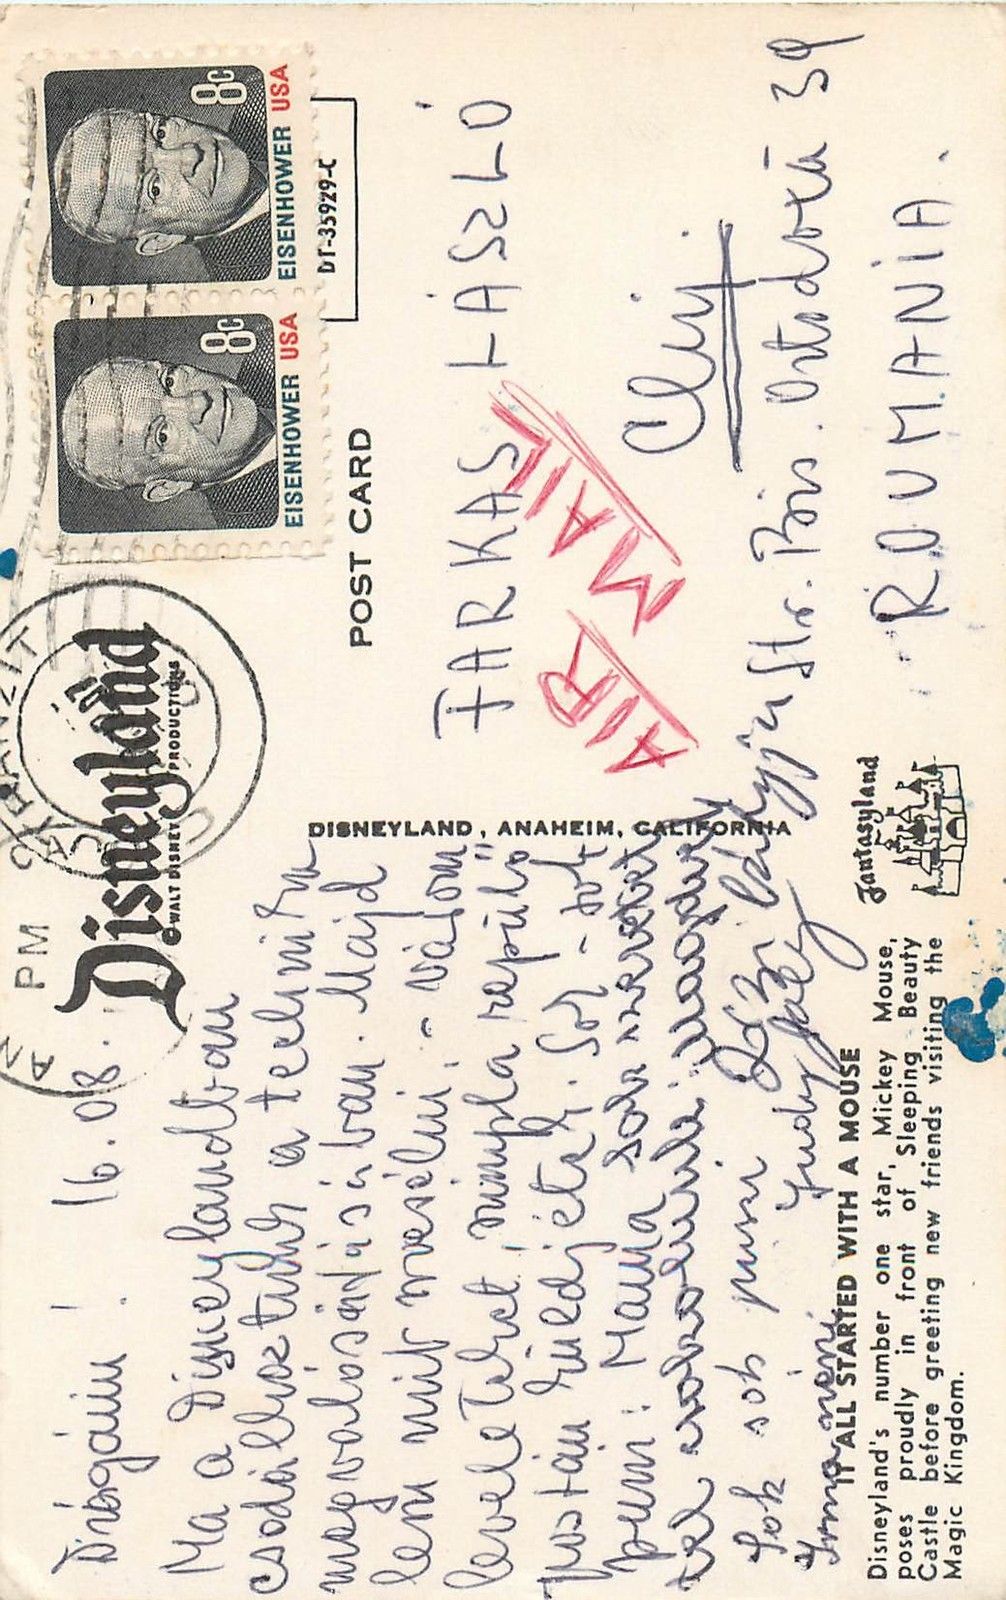 Disneyland
© WALT DISNEY PRODUCTIONS
8c
EISENHOWER USA
8c
EISENHOWER USA
PM
TRANZIT
DT-35929-C
POST CARD
DISNEYLAND, ANAHEIM, CALIFORNIA
Drágáim! 16.08.
Ma a Disneylandban
csodálkoztunk a technika
megvalósításában. Majd
lesz mit mesélni. - Vásom
leveleteket, simpla repülő
postán küldjétek. Sok-sok
puszi: Mama
Sok szeretettel
Sok sok puszi
Irma néni
Judy
FARKAS LÁSZLÓ
AIR MAIL
Cluj
Str. Bis. Ortodoxă 39
ROUMANIA.
IT ALL STARTED WITH A MOUSE
Disneyland's number one star, Mickey Mouse,
poses proudly in front of Sleeping Beauty
Castle before greeting new friends visiting the
Magic Kingdom.
Fantasyland